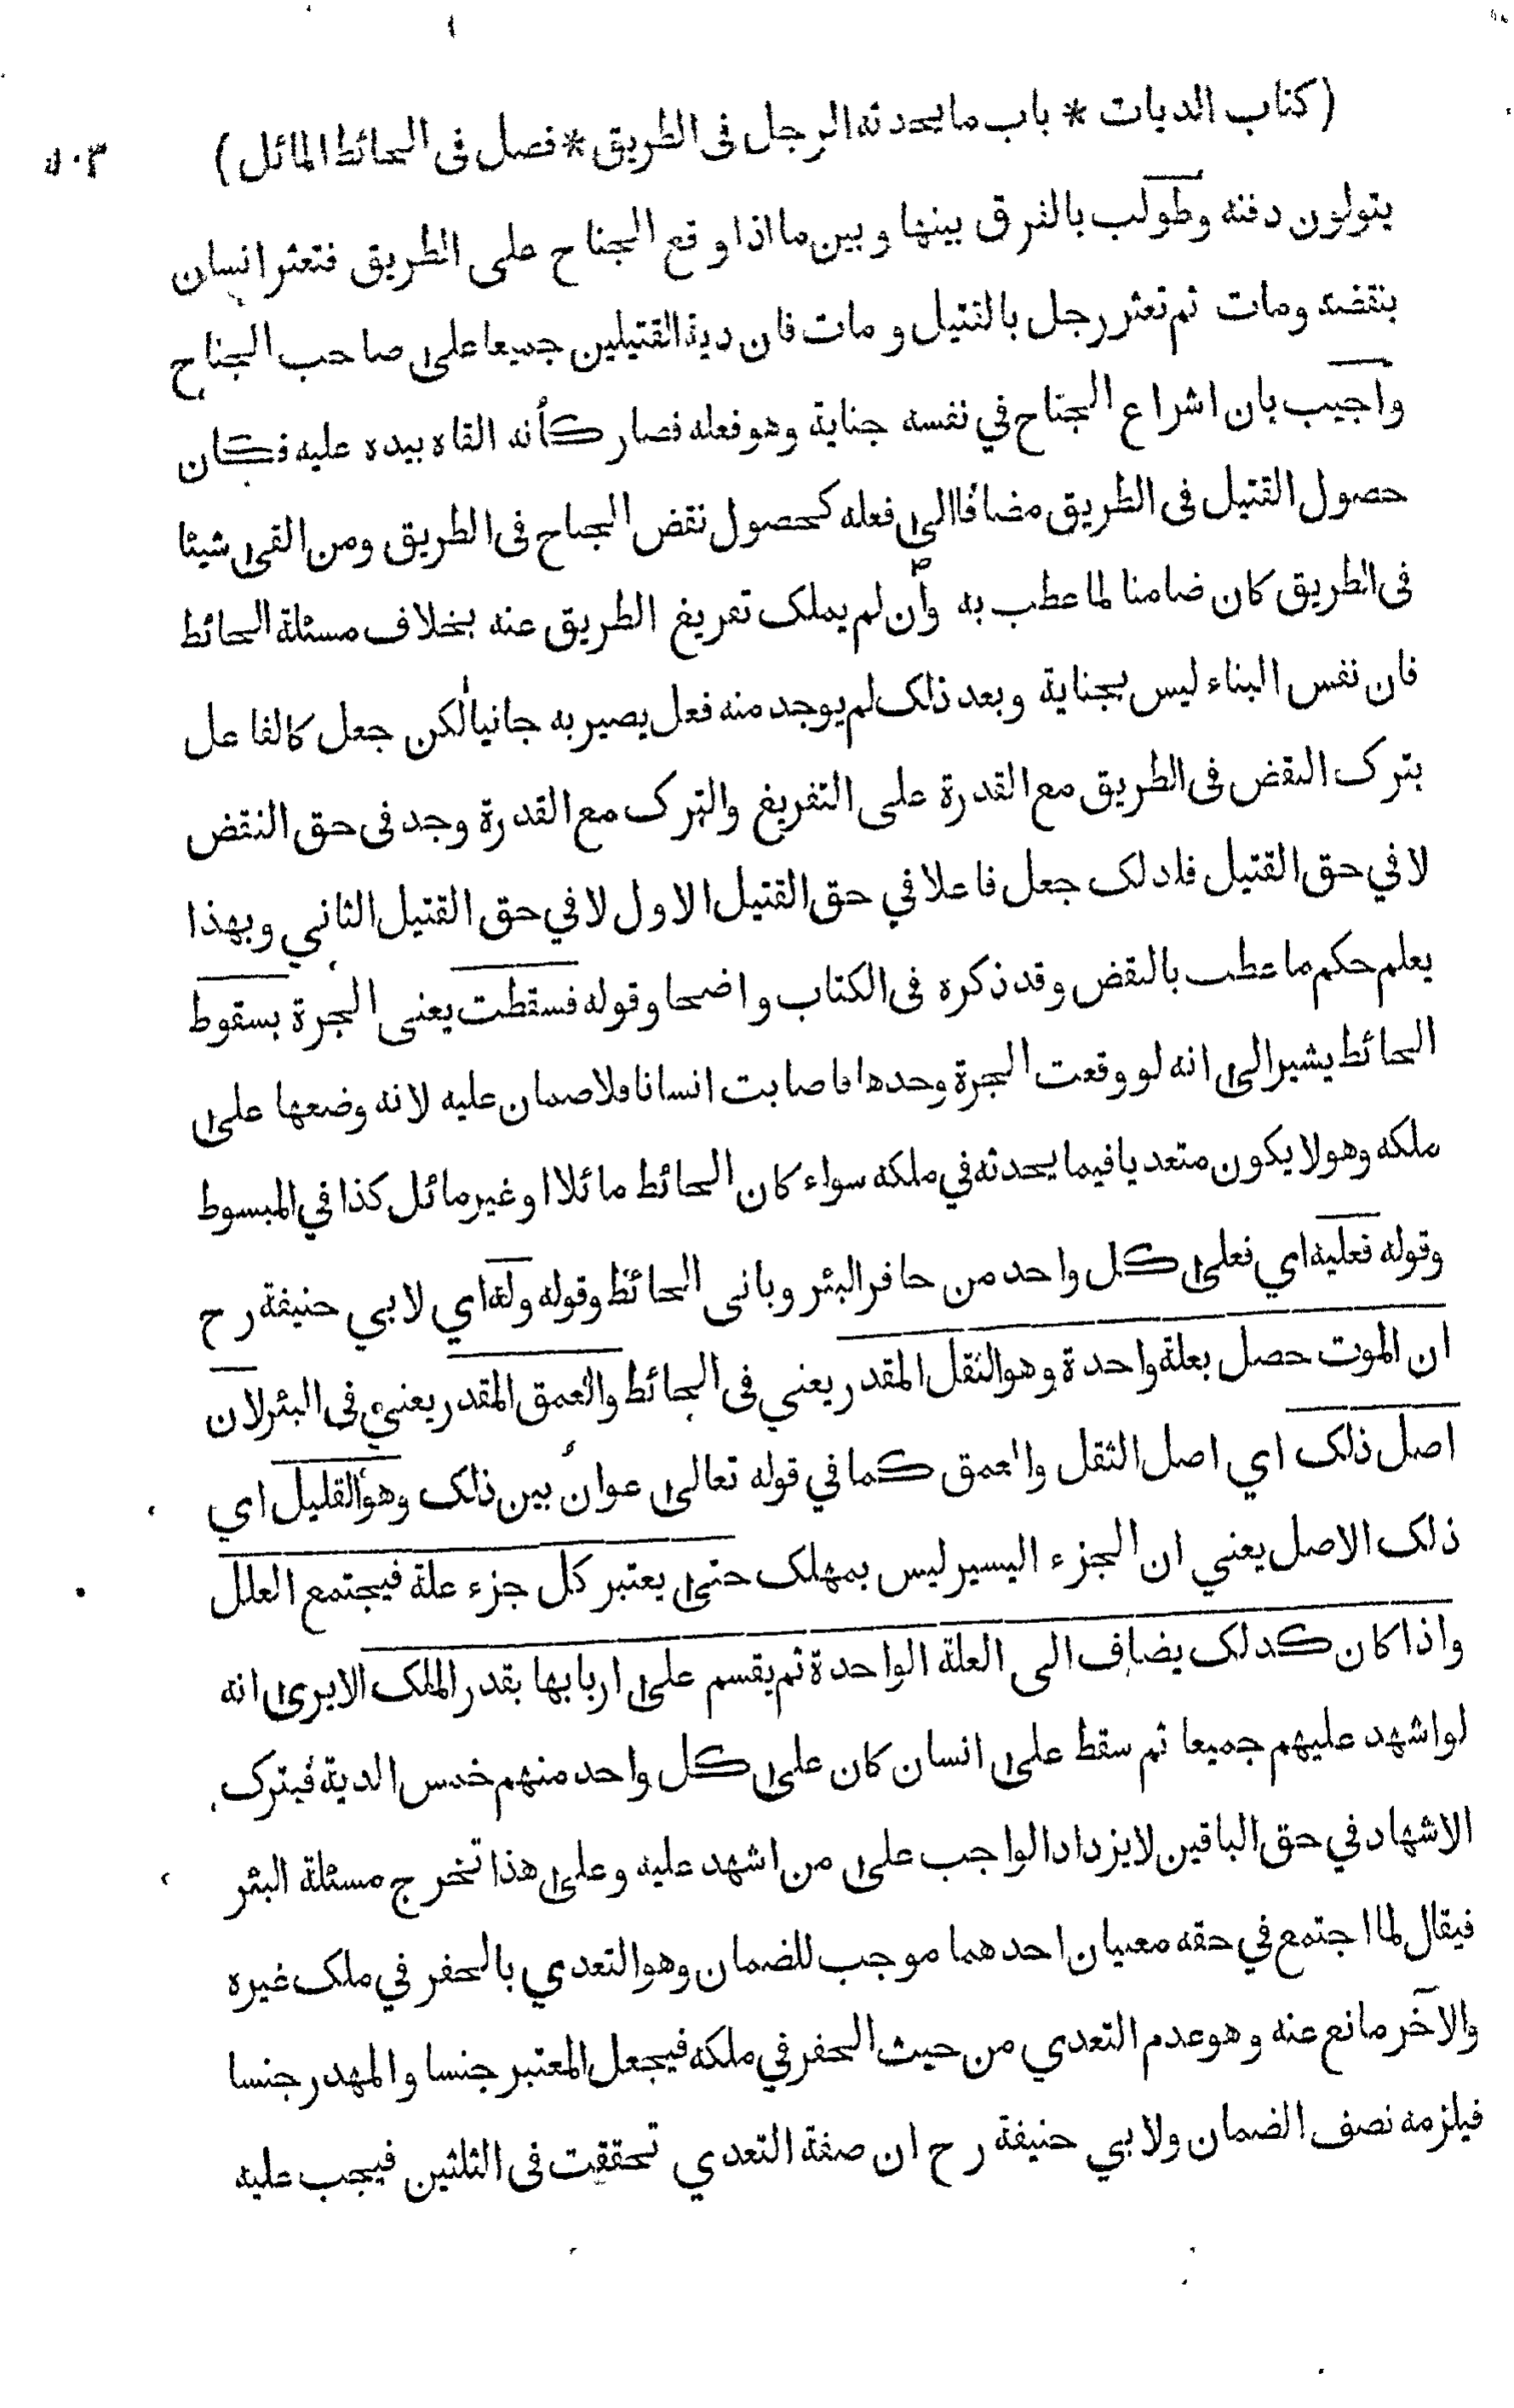 (كتاب الديات * باب ما يحدثه الرجل فى الطريق * فصل فى الحائط المائل) ٥٠٣
يتولون دفنه وطولب بالفرق بينها وبين ما اذا وقع الجناح على الطريق فتعثر انسان
بنقضه ومات ثم تعثر رجل بالقتيل ومات فان دية القتيلين جميعا على صاحب الجناح
واجيب بان اشراع الجناح في نفسه جناية وهو فعله فصار كأنه القاه بيده عليه فكان
حصول القتيل فى الطريق مضافا الى فعله كحصول نقض الجناح فى الطريق ومن القى شيئا
فى الطريق كان ضامنا لما عطب به وان لم يملك تفريغ الطريق عنه بخلاف مسئلة الحائط
فان نفس البناء ليس بجناية وبعد ذلك لم يوجد منه فعل يصير به جانيا لكن جعل كالفاعل
بترك النقض فى الطريق مع القدرة على التفريغ والترك مع القدرة وجد فى حق النقض
لا في حق القتيل فلذلك جعل فاعلا في حق القتيل الاول لا في حق القتيل الثاني وبهذا
يعلم حكم ما عطب بالنقض وقد ذكره فى الكتاب واضحا وقوله فسقطت يعنى الجرة بسقوط
الحائط يشير الى انه لو وقعت الجرة وحدها فاصابت انسانا فلا ضمان عليه لانه وضعها على
ملكه وهو لا يكون متعديا فيما يحدثه في ملكه سواء كان الحائط مائلا او غير مائل كذا في المبسوط
وقوله فعليه اي فعلى كل واحد من حافر البئر وبانى الحائط وقوله وله اي لابي حنيفة رح
ان الموت حصل بعلة واحدة وهو الثقل المقدر يعني فى الحائط والعمق المقدر يعني فى البئر لان
اصل ذلك اي اصل الثقل والعمق كما في قوله تعالى عوان بين ذلك وهو القليل اي
ذلك الاصل يعني ان الجزء اليسير ليس بمهلك حتى يعتبر كل جزء علة فيجتمع العلل
واذا كان كذلك يضاف الى العلة الواحدة ثم يقسم على اربابها بقدر الملك الا يرى انه
لو اشهد عليهم جميعا ثم سقط على انسان كان على كل واحد منهم خمس الدية فبترك
الاشهاد في حق الباقين لا يزداد الواجب على من اشهد عليه وعلى هذا تخرج مسئلة البئر
فيقال لما اجتمع في حقه معنيان احدهما موجب للضمان وهو التعدي بالحفر في ملك غيره
والآخر مانع عنه وهو عدم التعدي من حيث الحفر في ملكه فيجعل المعتبر جنسا والمهدر جنسا
فيلزمه نصف الضمان ولابي حنيفة رح ان صفة التعدي تحققت فى الثلثين فيجب عليه